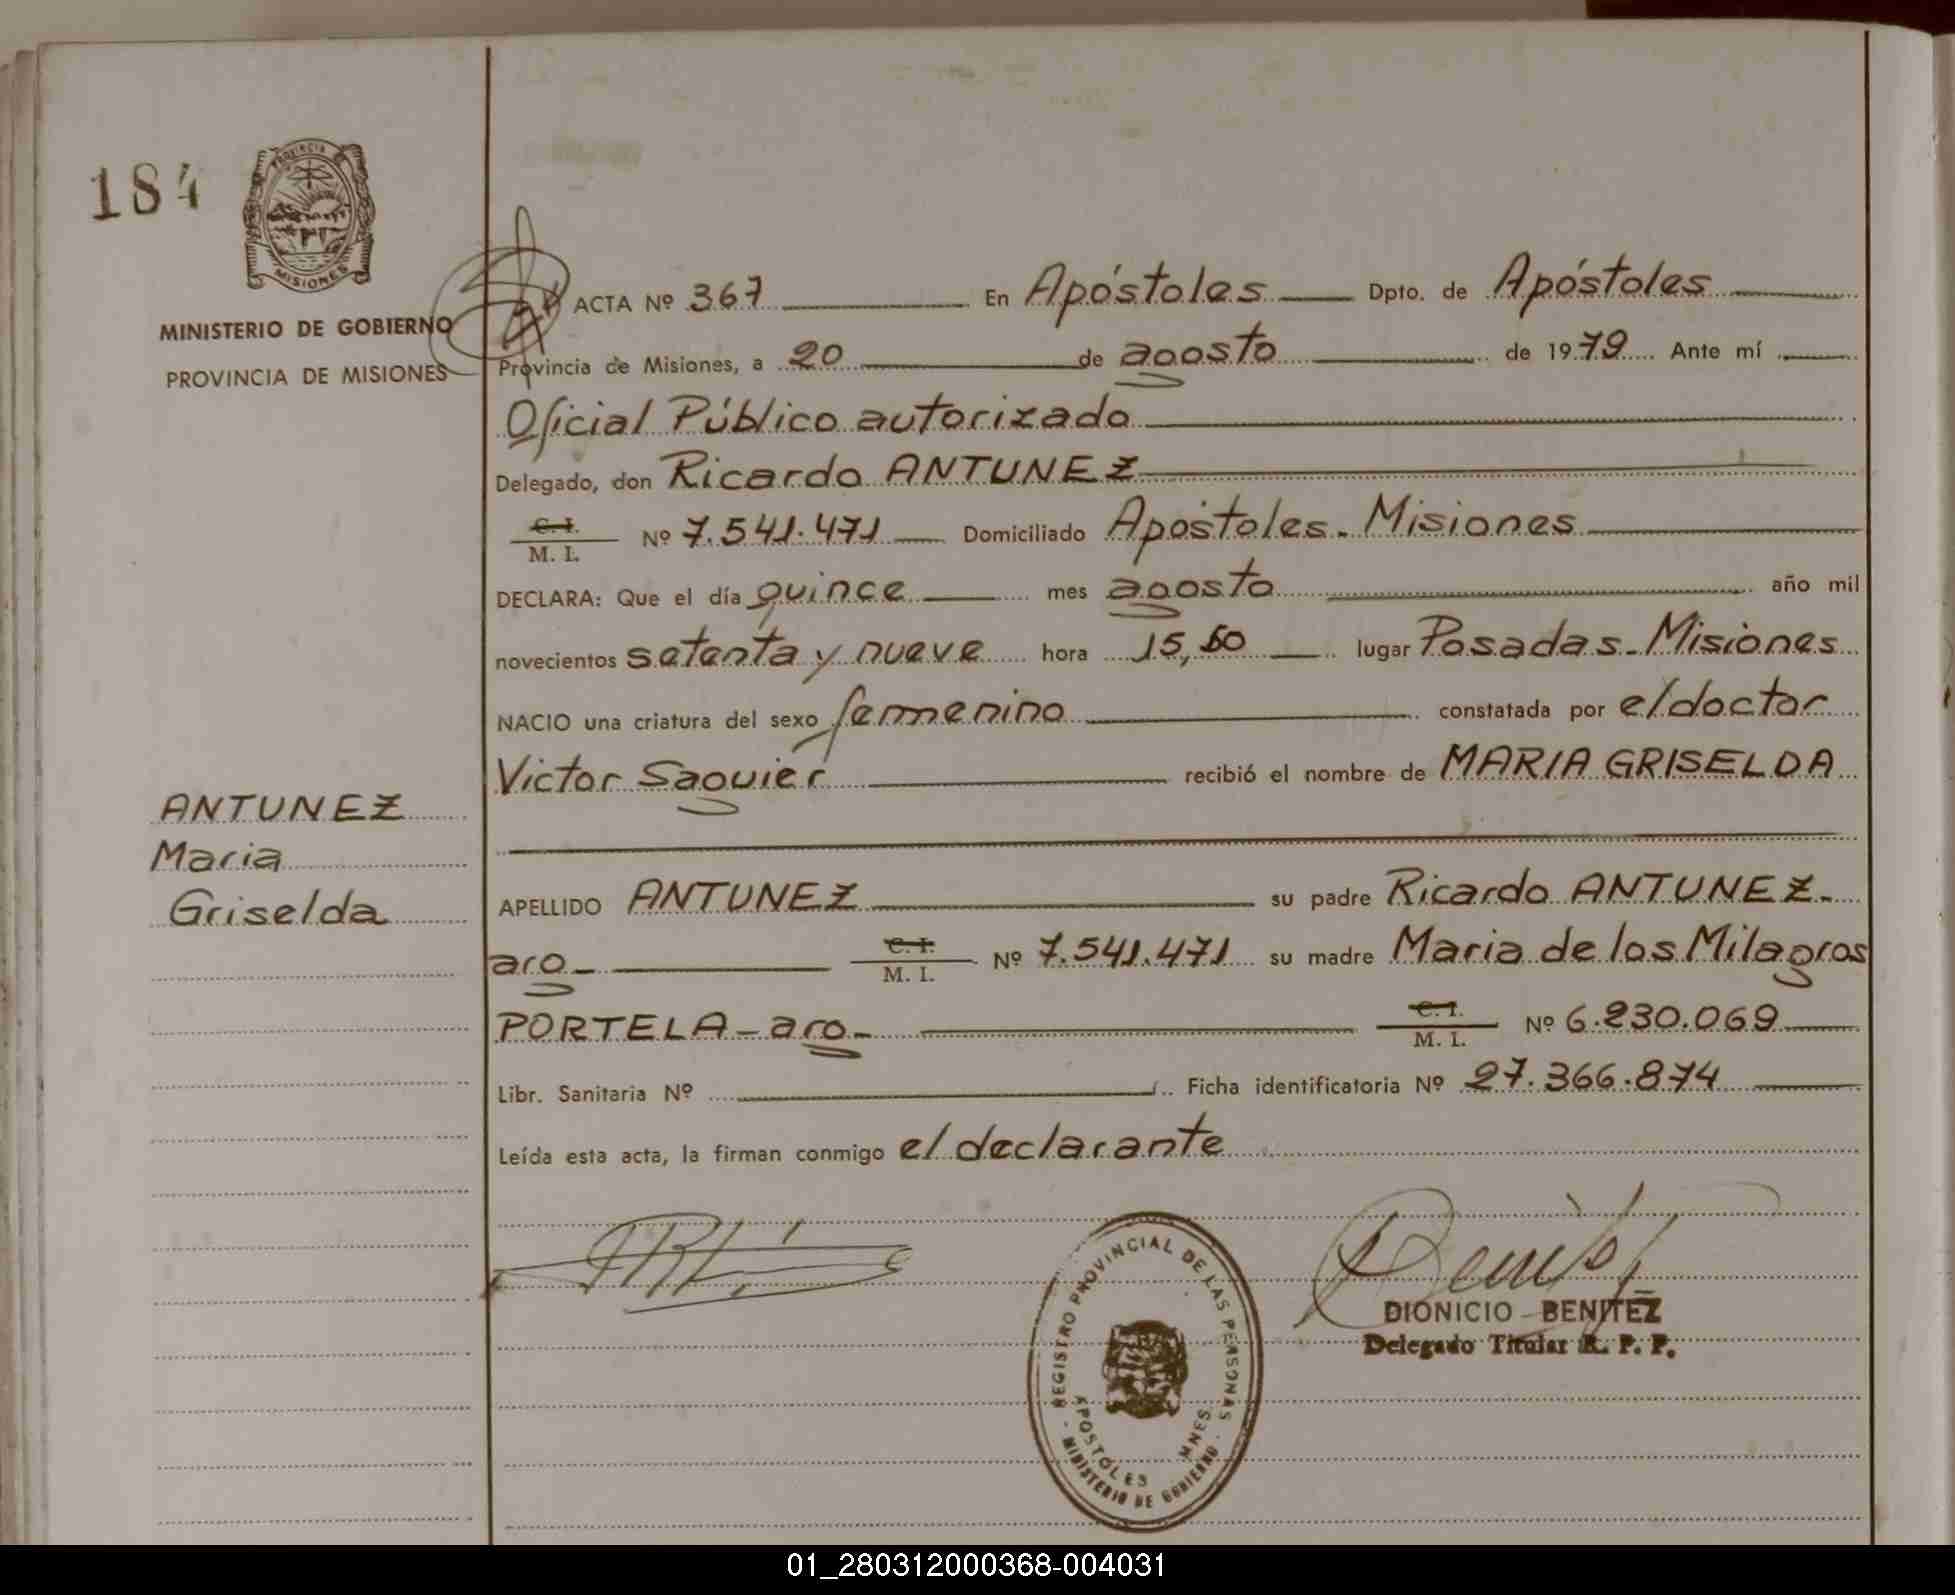 184
PROVINCIA DE
MISIONES
MINISTERIO DE GOBIERNO
PROVINCIA DE MISIONES
ACTA Nº 367 En Apóstoles Dpto. de Apóstoles
Provincia de Misiones, a 20 de agosto de 1979 Ante mí
Oficial Público autorizado
Delegado, don Ricardo ANTUNEZ
C. I.
M. I. Nº 7.541.471 Domiciliado Apóstoles. Misiones
DECLARA: Que el día quince mes agosto año mil
novecientos setenta y nueve hora 15,50 lugar Posadas-Misiones
NACIO una criatura del sexo femenino constatada por el doctor
Victor Saguier recibió el nombre de MARIA GRISELDA
ANTUNEZ
Maria
Griselda
APELLIDO ANTUNEZ su padre Ricardo ANTUNEZ-
aro- C. I.
M. I. Nº 7.541.471 su madre Maria de los Milagros
PORTELA-aro- C. I.
M. I. Nº 6.230.069
Libr. Sanitaria Nº Ficha identificatoria Nº 27.366.874
Leída esta acta, la firman conmigo el declarante
REGISTRO PROVINCIAL DE LAS PERSONAS
APOSTOLES MNES.
MINISTERIO DE GOBIERNO
DIONICIO BENITEZ
Delegado Titular R. P. P.
01_280312000368-004031